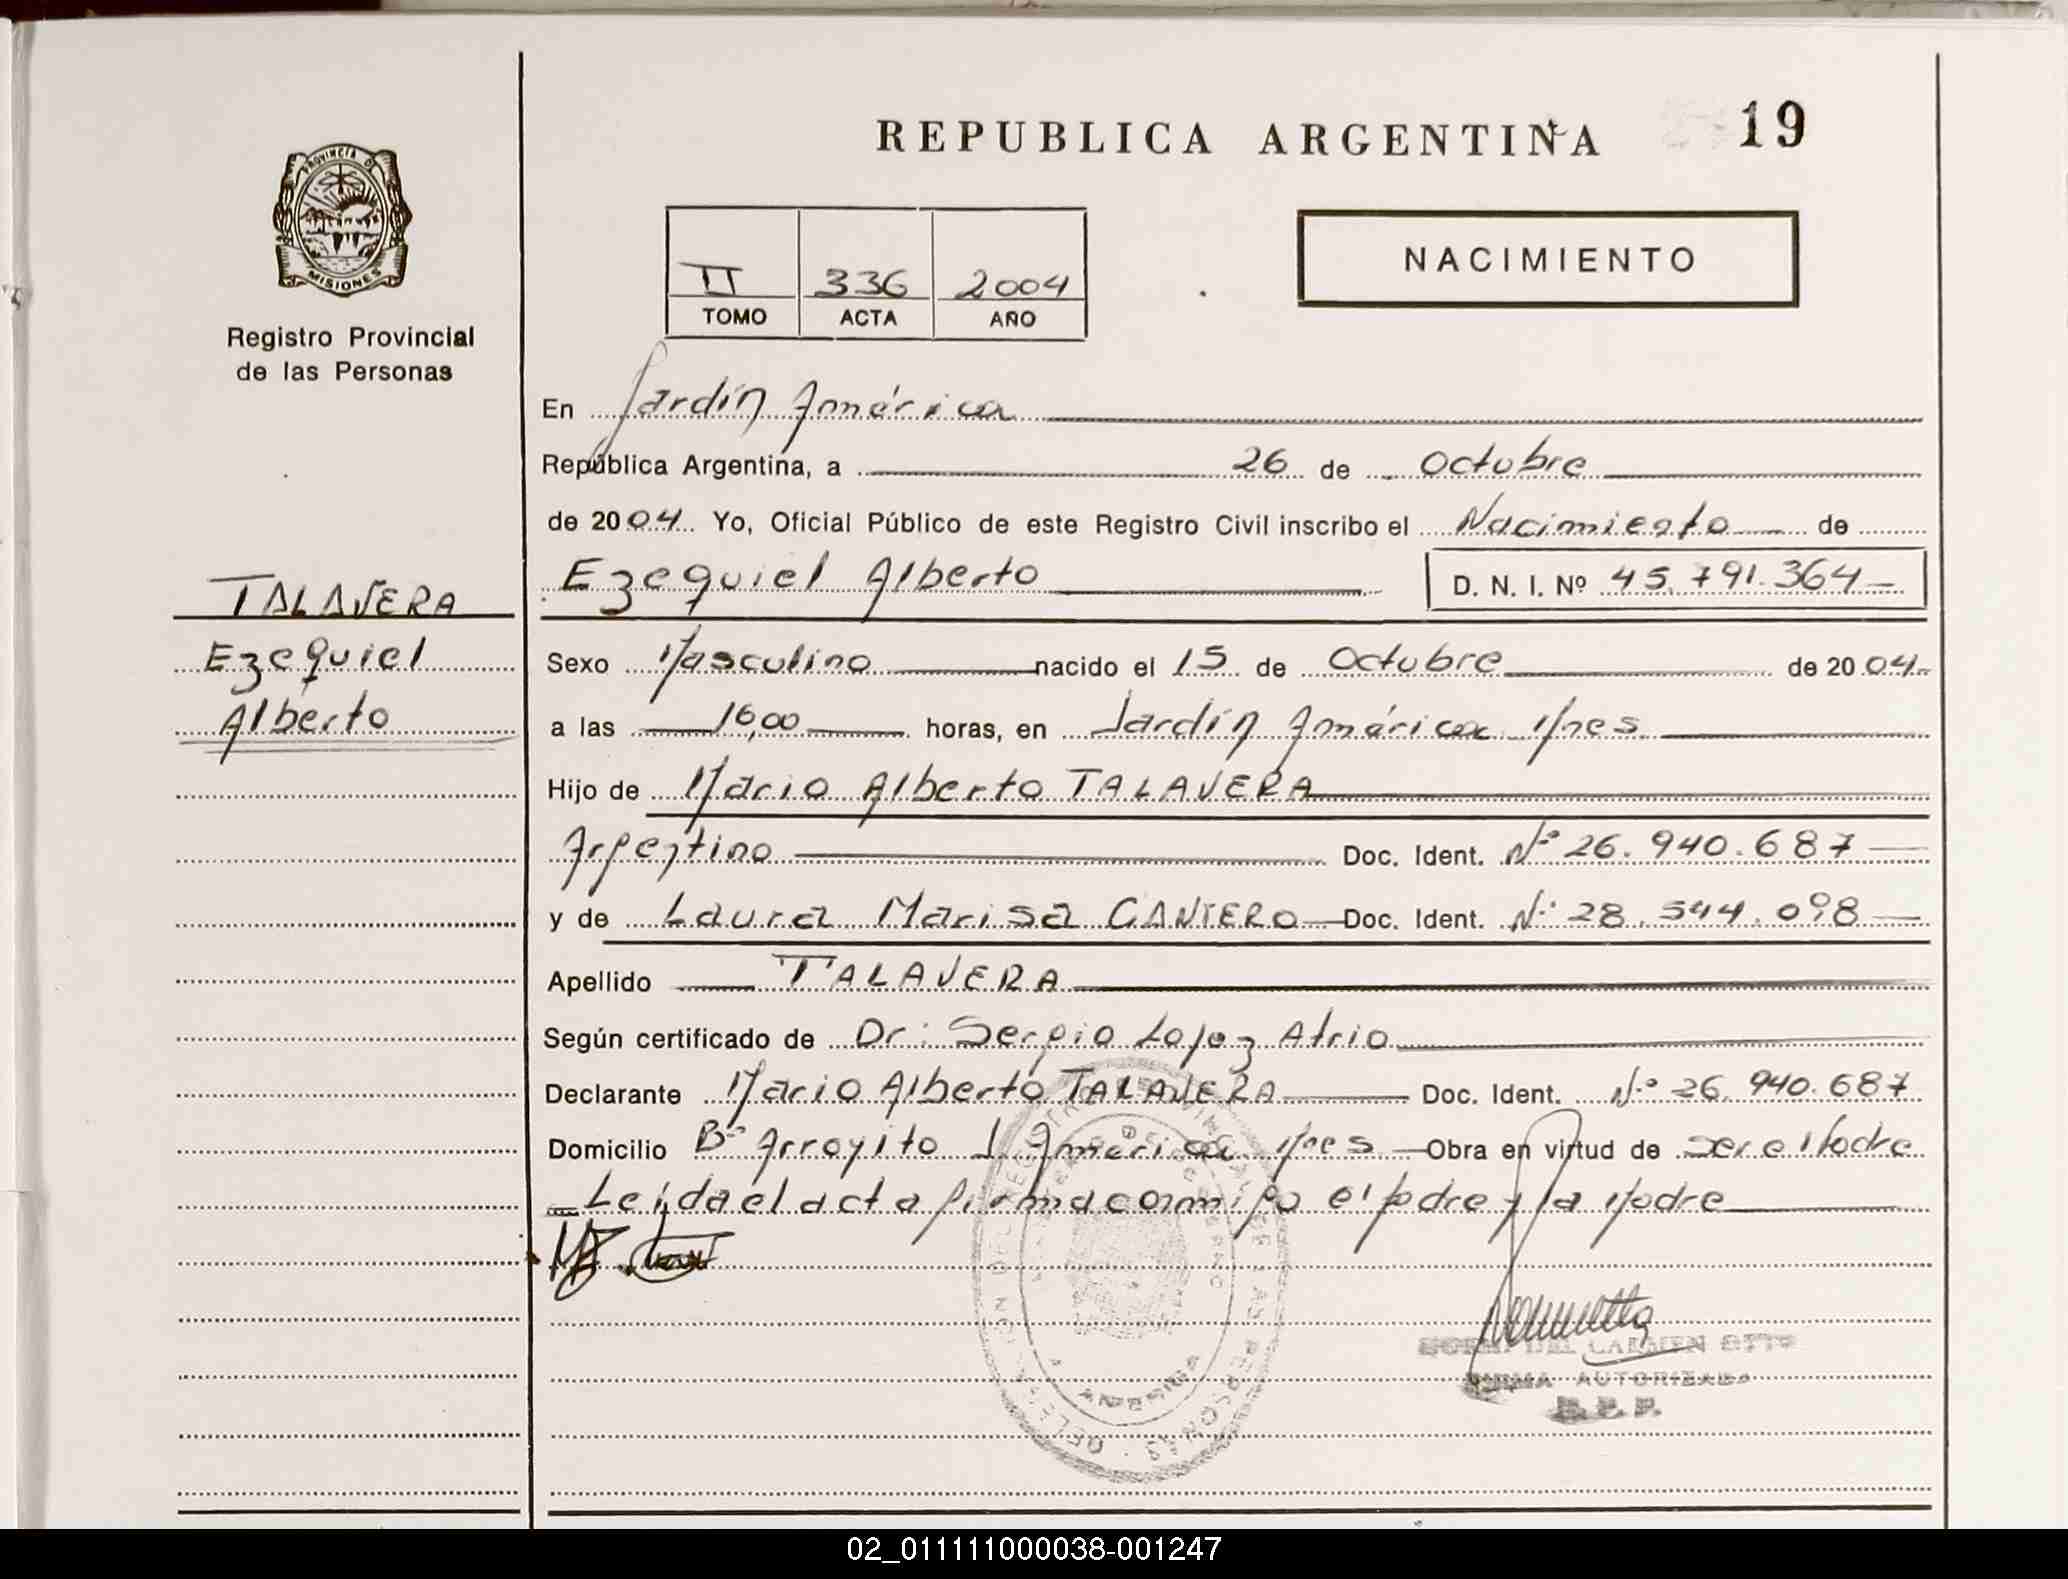 REPUBLICA ARGENTINA
19
PROVINCIA DE
MISIONES
Registro Provincial
de las Personas
II 336 2004
TOMO ACTA AÑO
NACIMIENTO
En Jardín América
República Argentina, a 26 de Octubre
de 2004 Yo, Oficial Público de este Registro Civil inscribo el Nacimiento de
Ezequiel Alberto D. N. I. Nº 45.791.364
TALAVERA
Ezequiel
Alberto
Sexo Masculino nacido el 15 de Octubre de 2004
a las 16,00 horas, en Jardín América Mnes
Hijo de Mario Alberto TALAVERA
Argentino Doc. Ident. Nº 26.940.687
y de Laura Marisa CANTERO Doc. Ident. Nº 28.544.098
Apellido TALAVERA
Según certificado de Dr: Sergio Lopez Atrio
Declarante Mario Alberto TALAVERA Doc. Ident. Nº 26.940.687
Domicilio Bº Arroyito J. América Mnes Obra en virtud de ser el Padre
Leída el acta firma conmigo el padre y la Madre
DEL CARMEN OTTO
FIRMA AUTORIZADA
R. P. P.
AMERICA
02_011111000038-001247